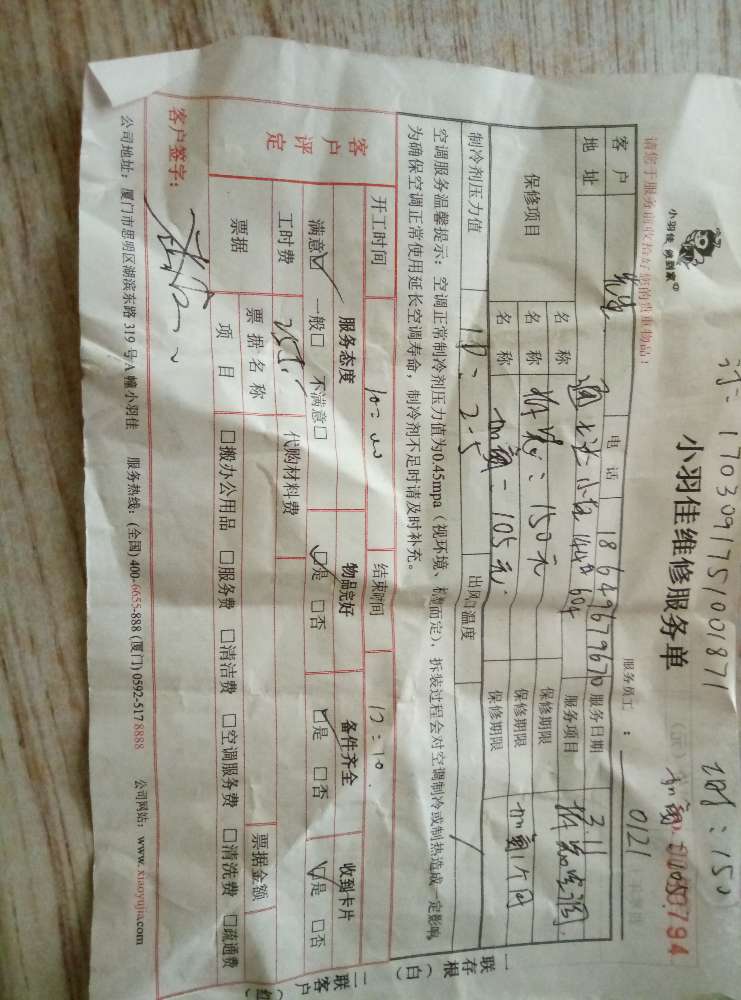 1703091751001871
150
小羽佳 做到家
小羽佳维修服务单
请您于服务前收拾好您的贵重物品！
服务员工：
0121
客户
先生
电话
18649679670
服务日期
3.11
地址
服务项目
拆装空调
保修项目
名称
拆装：150元
保修期限
名称
加氟：105元
保修期限
加氟1个月
名称
保修期限
制冷剂压力值
出风温度
空调服务温馨提示：空调正常制冷剂压力值为0.45mpa（视环境、
而定），拆装过程会对空调制冷或制热造成一定影响，
为确保空调正常使用延长空调寿命，制冷剂不足时请及时补充。
开工时间
10:00
结束时间
12:10
客户评定
服务态度
物品完好
备件齐全
收到卡片
满意☑ 一般□ 不满意□
☑是 □否
☑是 □否
☑是 □否
工时费
255.
代购材料费
票据
票据名称
票据金额
项目
□搬办公用品 □服务费 □清洁费 □空调服务费 □清洗费 □疏通费
客户签字：
公司地址：厦门市思明区湖滨东路 319 号 A 幢小羽佳 服务热线：(全国) 400-6655-888 (厦门) 0592-517 8888 公司网站：www.xiaoyujia.com
一存根（白）联
二客户
联